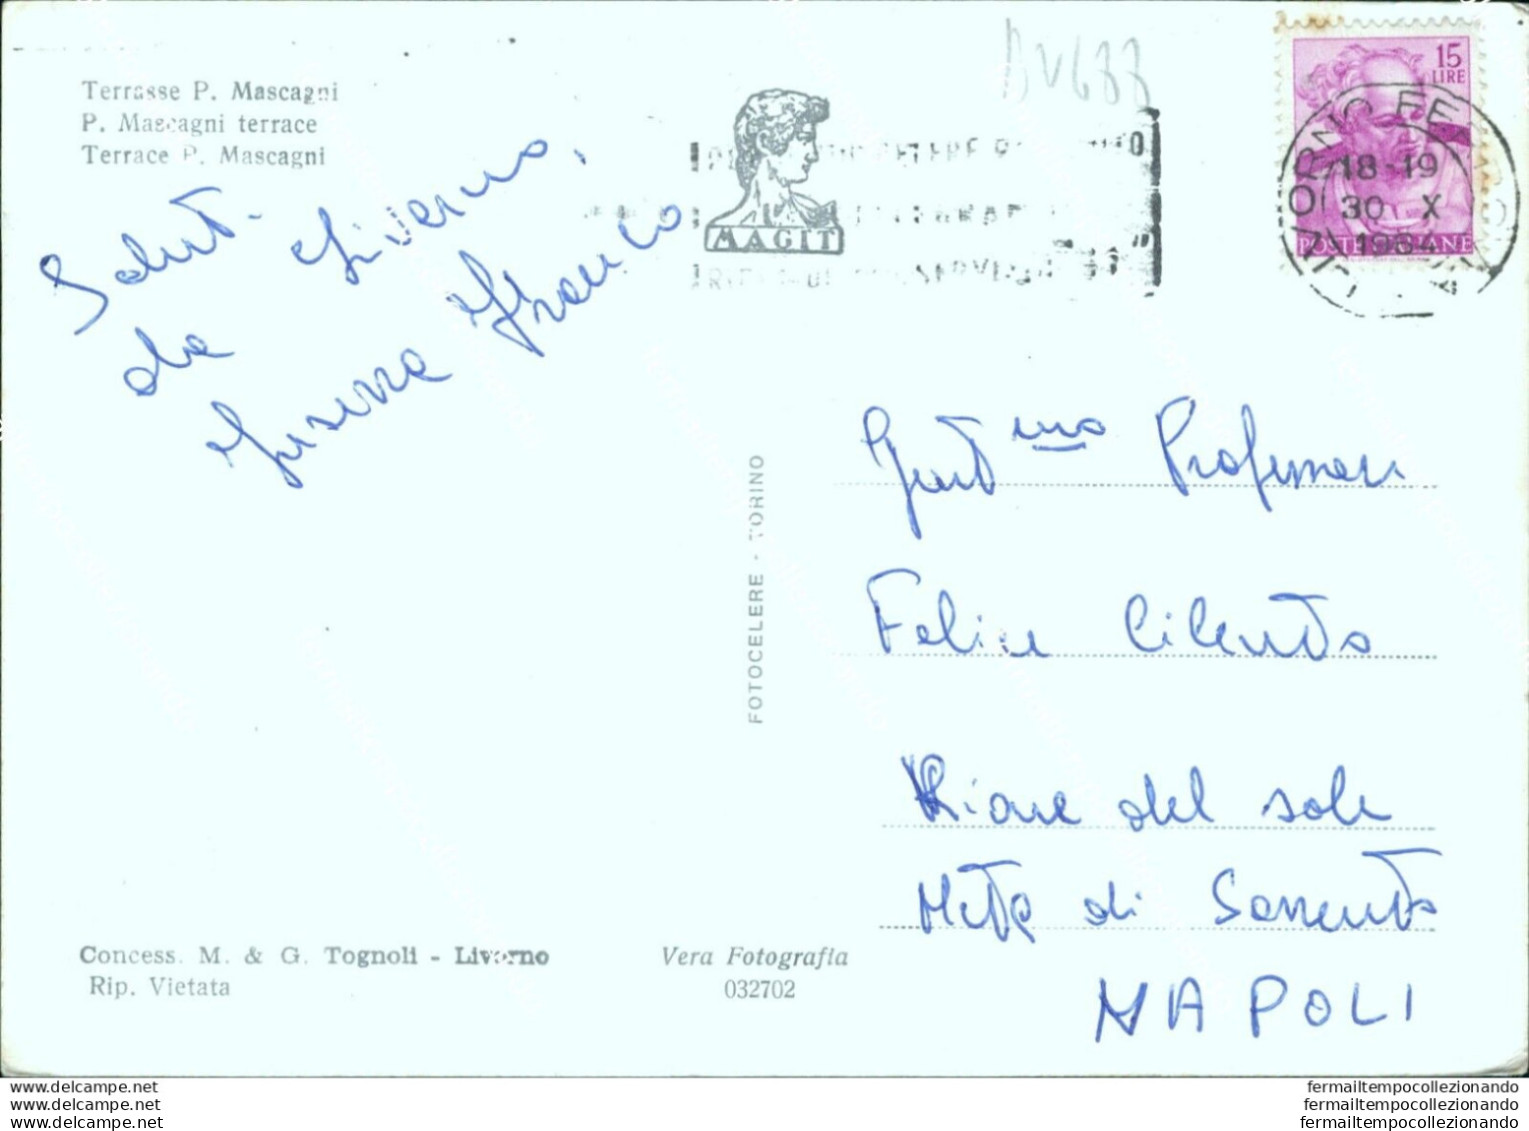 Terrasse P. Mascagni
P. Mascagni terrace
Terrace P. Mascagni
Saluti
da Livorno,
Franco
BV688
MAGIT
15
LIRE
POSTE ITALIANE
LIVORNO FERROVIA
18-19
30 X
1964
FOTOCELERE - TORINO
Gent mo Professor
Felice Cilento
Rione del sole
Meta di Sorrento
NAPOLI
Concess. M. & G. Tognoli - Livorno
Rip. Vietata
Vera Fotografia
032702
www.delcampe.net
www.delcampe.net
www.delcampe.net
fermailtempocollezionando
fermailtempocollezionando
fermailtempocollezionando